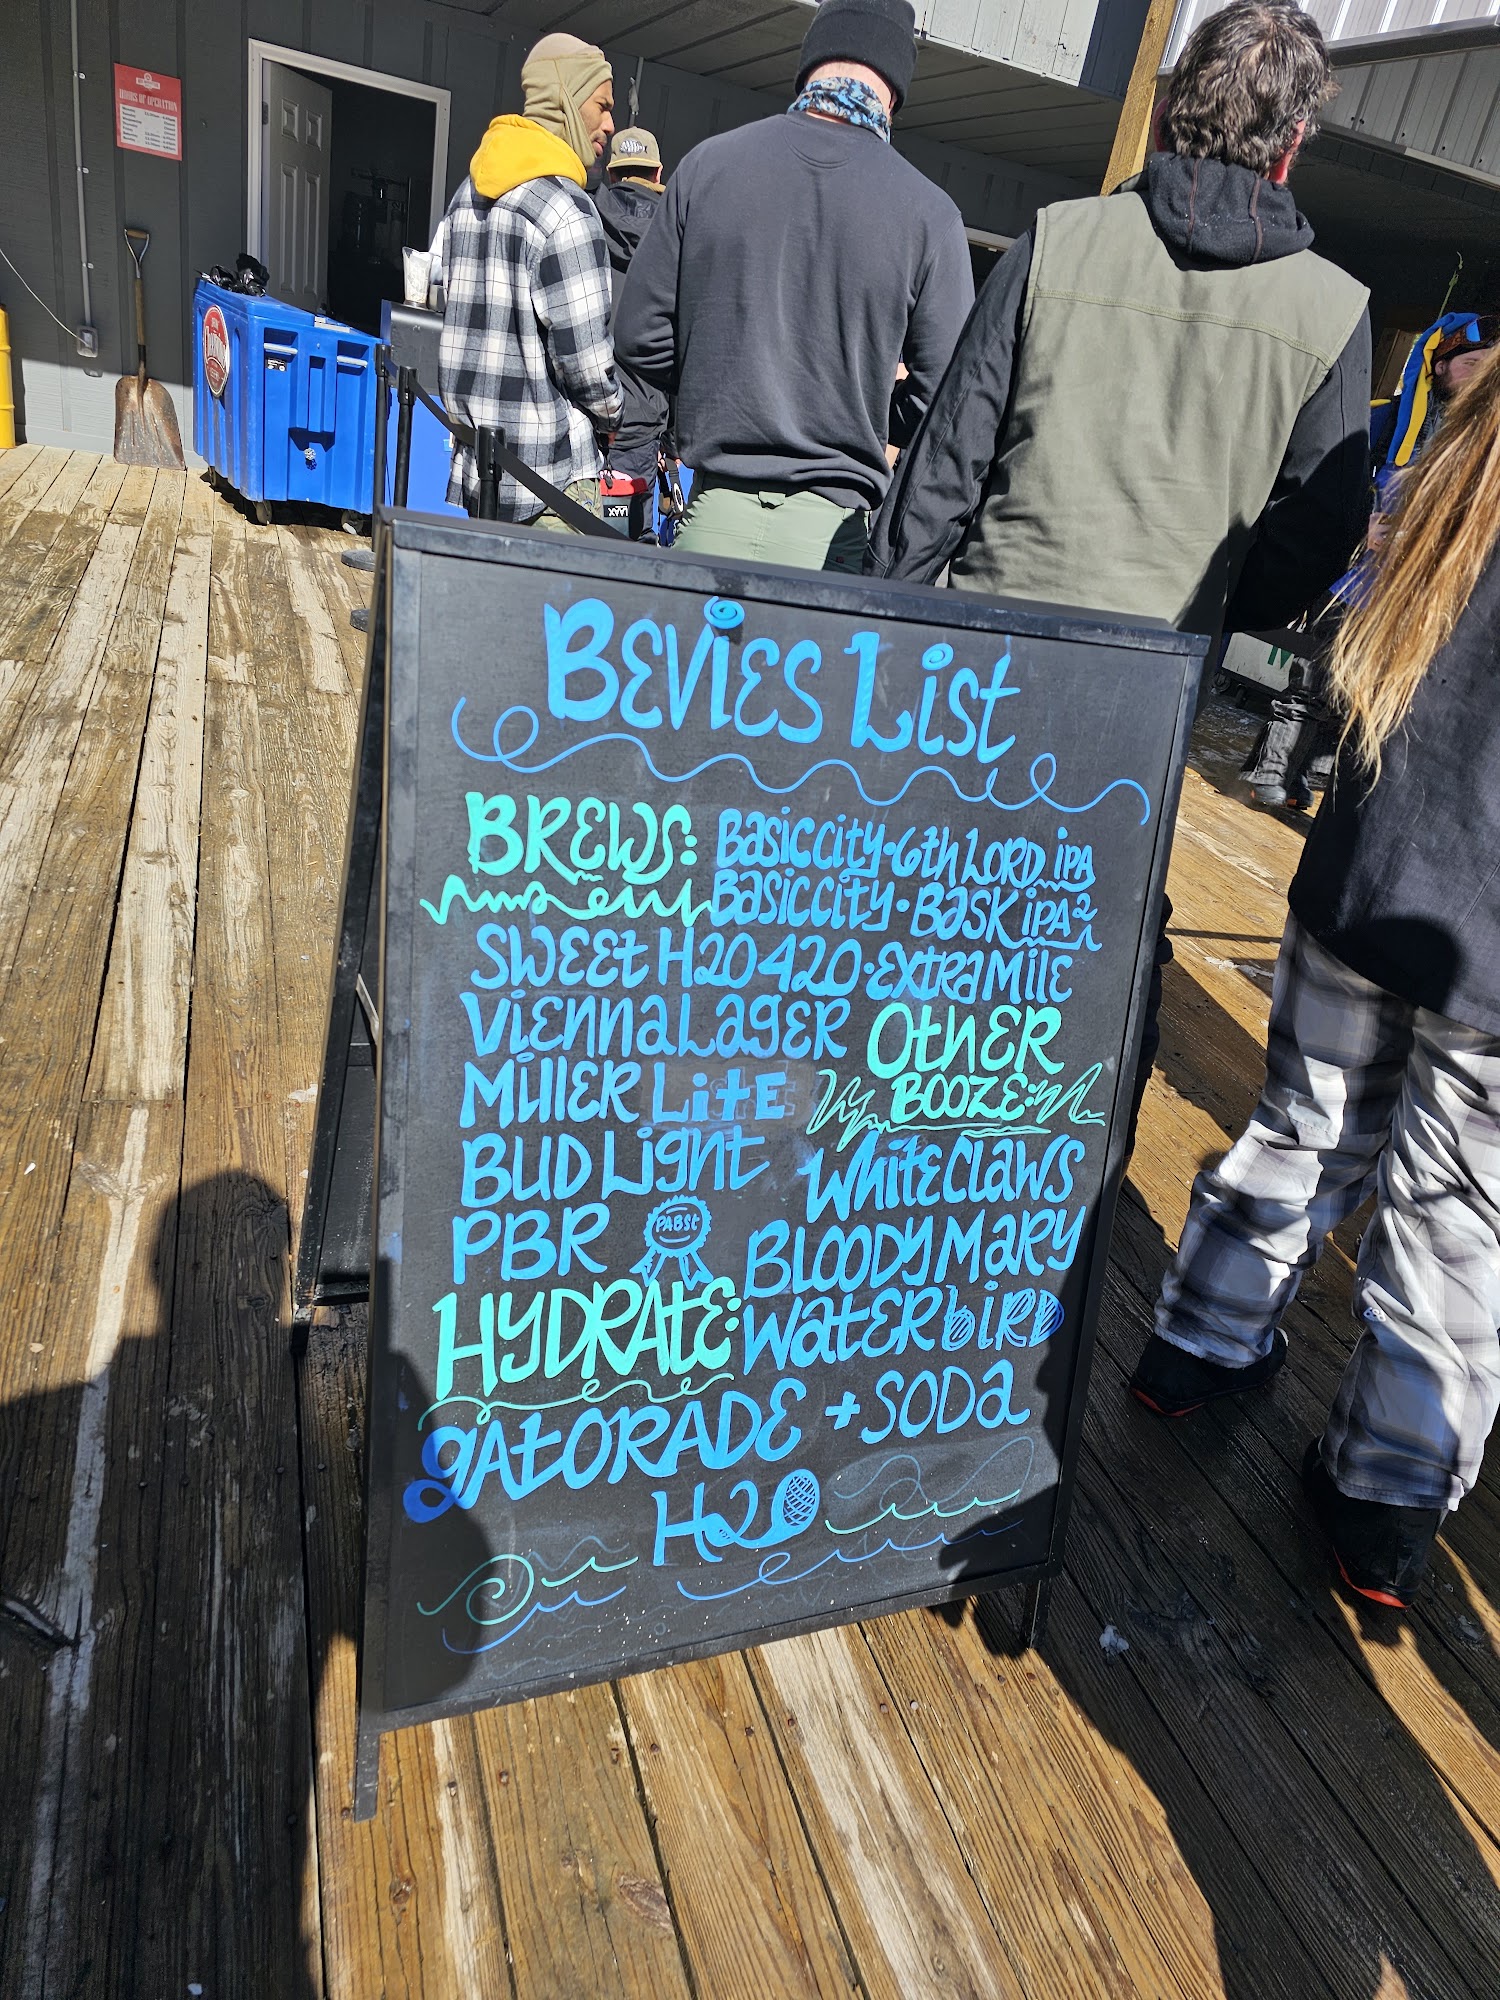 HOURS OF OPERATION
BEVIES LIST
BREWS:
BASIC CITY • 6th LORD IPA
BASIC CITY • BASK IPA²
SWEET H20 420 • EXTRA MILE
VIENNA LAGER
MILLER LITE
BUD LIGHT
PBR
PABST
OTHER
BOOZE:
WHITE CLAWS
BLOODY MARY
WATERBIRD
HYDRATE:
GATORADE + SODA
H2O